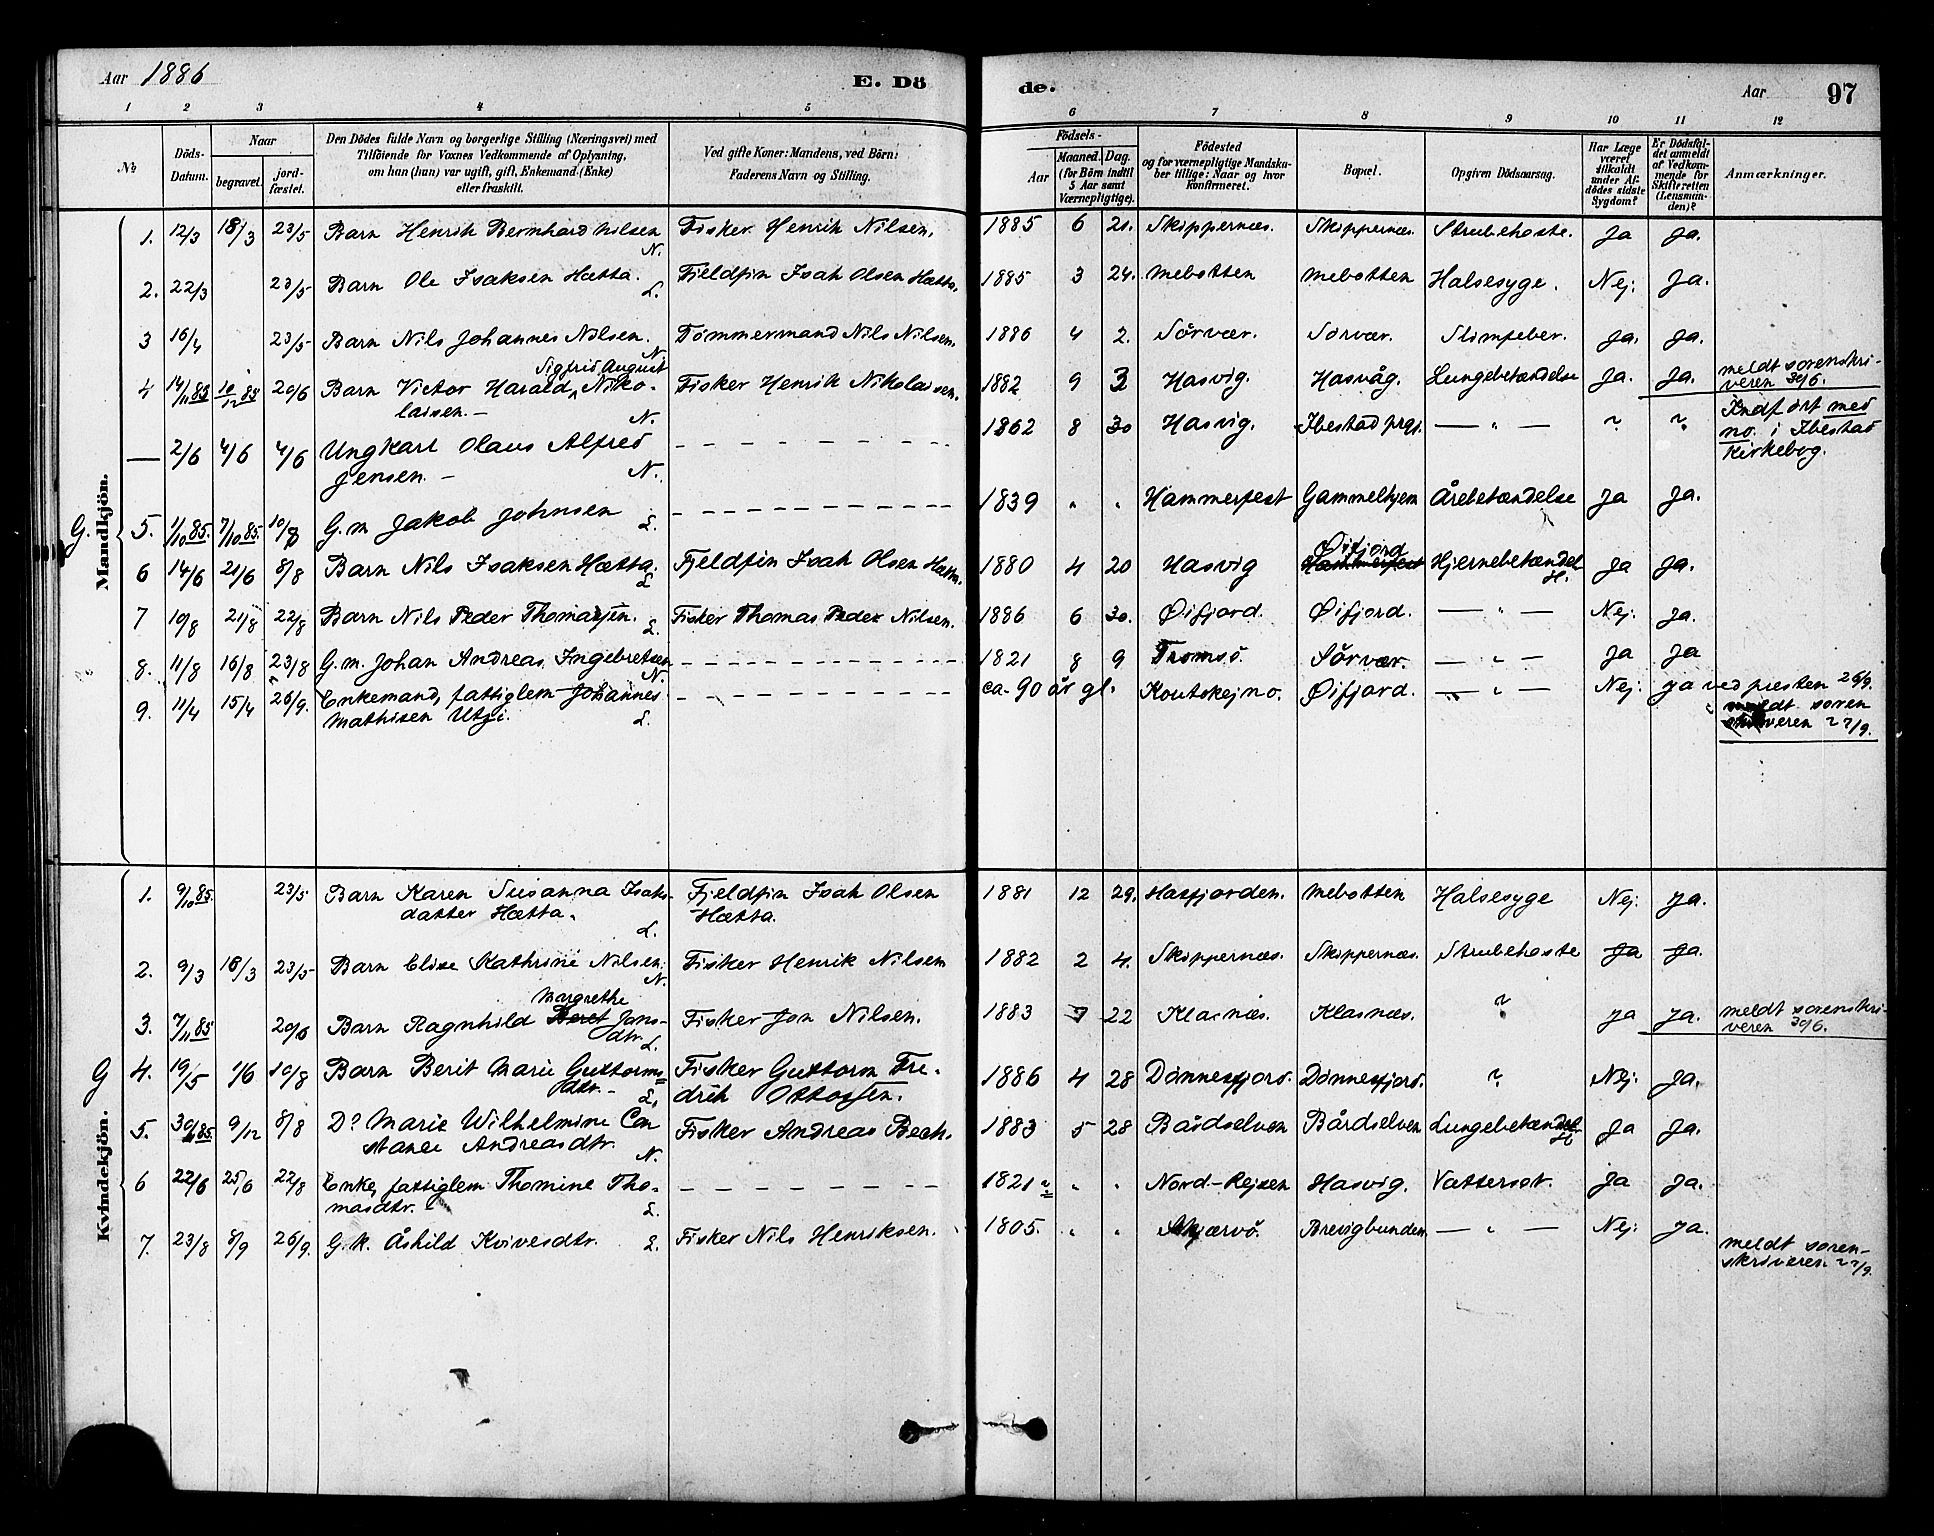 Aar 1886 E. Dö de. Aar 97
1 2 3 4 5 6 7 8 9 10 11 12
№ Döds-Datum. Naar begravet. jordfæstet. Den Dödes fulde Navn og borgerlige Stilling (Næringsvei) med Tilföiende for Voxnes Vedkommende af Oplysning, om han (hun) var ugift, gift, Enkemand (Enke) eller fraskilt. Ved gifte Koner: Mandens, ved Börn: Faderens Navn og Stilling. Födsels- Aar Maaned. Dag. (for Börn indtil 5 Aar samt Værnepligtige). Födested og for værnepligtige Mandskaber tillige: Naar og hvor konfirmeret. Bopæl. Opgiven Dödsaarsag. Har Læge været tilkaldt under Afdödes sidste Sygdom? Er Dödsfaldet anmeldt af Vedkommende for Skifteretten (Lensmanden)? Anmærkninger.
Mandkjön.
1. 12/3 18/3 23/5 Barn Henrik Bernhard Nilsen N. Fisker Henrik Nilsen. 1885 6 21. Skippernæs. Skippernæs. Strubehoste. Ja Ja.
2. 22/3 23/5 Barn Ole Isaksen Hætta. L. Fjeldfin Isak Olsen Hætta. 1885 3 24. Mebotten Mebotten Halsesyge. Nej. Ja.
3 16/4 23/5 Barn Nils Johannes Nilsen. N. Tømmermand Nils Nilsen. 1886 4 2. Sørvær. Sørvær. Slimfeber. Ja. Ja.
Sigfrid August
4 14/11 83 10/12 83 20/6 Barn Victor Harald Nikolaisen. – N. Fisker Henrik Nikolaisen. 1882 9 3 Hasvig. Hasvåg. Lungebetændelse Ja. Ja. meldt sorenskriveren 30/6.
— 2/6 4/6 4/6 Ungkarl Olaus Alfred Jensen. – N. 1862 8 30 Hasvig. Ibestad prgj. — " — ? ? Indført med no. i Ibestad Kirkebog.
G. 5. 1/10 85. 7/10 85. 10/8 G.m Jakob Johnsen L. 1839 " " Hammerfest Gammelhjem Årebetændelse Ja Ja.
6 14/6 21/6 8/8 Barn Nils Isaksen Hætta. L. Fjeldfin Isak Olsen Hætta. 1880 4 20 Hasvig Øifjord Hjernebetændels. Ja Ja.
7 10/8 21/8 22/8 Barn Nils Peder Thomassen. L. Fisker Thomas Peder Nilsen. 1886 6 30. Øifjord. Øifjord. — " — Nej. Ja.
8. 11/8 16/8 23/8 G.m. Johan Andreas Ingebretsen N. 1821 8 9 Tromsø. Sørvær. — " — Ja Ja
9. 11/4 15/4 26/9. Enkemand, fattiglem Johannes Mathisen Utsi. L. ca. 90 år gl. Koutokejno. Øifjord. — " — Nej. Ja ved presten 26/9. meldt sorenskriveren 27/9.
Kvindekjön.
1. 9/10 85. 23/5 Barn Karen Susanna Isaksdatter Hætta. L. Fjeldfin Isak Olsen Hætta. 1881 12 29. Hasfjorden. Mebotten Halsesyge Nej. Ja.
2. 9/3 18/3 23/5 Barn Elise Kathrine Nilsen. N. Fisker Henrik Nilsen 1882 2 4. Skippernæs. Skippernæs. Strubehoste Ja Ja.
Margrethe
3. 7/11 85 20/6 Barn Ragnhild Beret Jonsdtr. L. Fisker Jon Nilsen. 1883 22 Klasnæs. Klasnæs. ? Ja Ja. meldt sorenskriveren 30/6.
G 4. 19/5 1/6 10/8 Barn Berit Marie Guttormsdtr. – L. Fisker Guttorm Fredrik Ottossen. 1886 4 28 Dønnesfjord. Dønnesfjord. ? Nej. Ja.
5. 30/11 85. 9/12 8/8 Do Marie Wilhelmine Constance Andreasdtr. N. Fisker Andreas Bech. 1883 5 28 Bårdselven Bårdselven Lungebetændels. Ja Ja.
6 22/6 25/6 22/8 Enke, fattiglem Thomine Thomasdtr. L. 1821 ? " " Nord-Rejsen Hasvig. Vattersot. Ja Ja.
7. 23/8 8/9 26/9. G.k. Åshild Kvivesdtr. L. Fisker Nils Henriksen. 1805. " " Skjærvø. Brevigbunden — " — Nej. Ja. meldt sorenskriveren. 27/9.